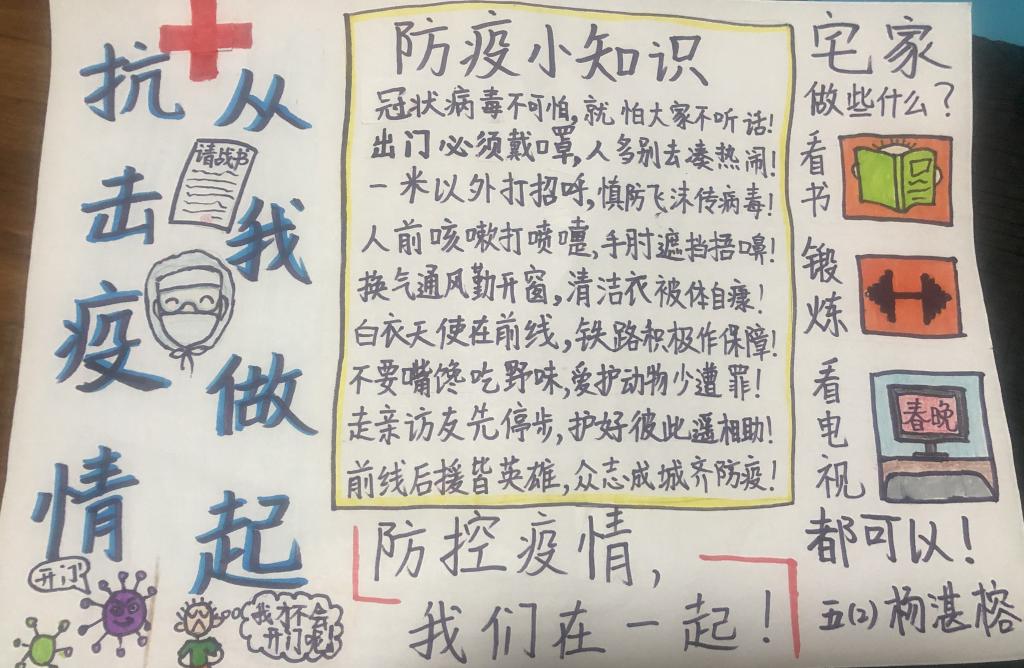 抗击疫情
从我做起
请战书
开门!
我才不会
开门呢!
防疫小知识
冠状病毒不可怕,就怕大家不听话!
出门必须戴口罩,人多别去凑热闹!
一米以外打招呼,慎防飞沫传病毒!
人前咳嗽打喷嚏,手肘遮挡捂嘴!
换气通风勤开窗,清洁衣被体自康!
白衣天使在前线,铁路积极作保障!
不要嘴馋吃野味,爱护动物少遭罪!
走亲访友先停步,护好彼此遥相助!
前线后援皆英雄,众志成城齐防疫!
防控疫情,
我们在一起!
宅家
做些什么?
看书
锻炼
看电视
春晚
都可以!
五(2)杨湛榕